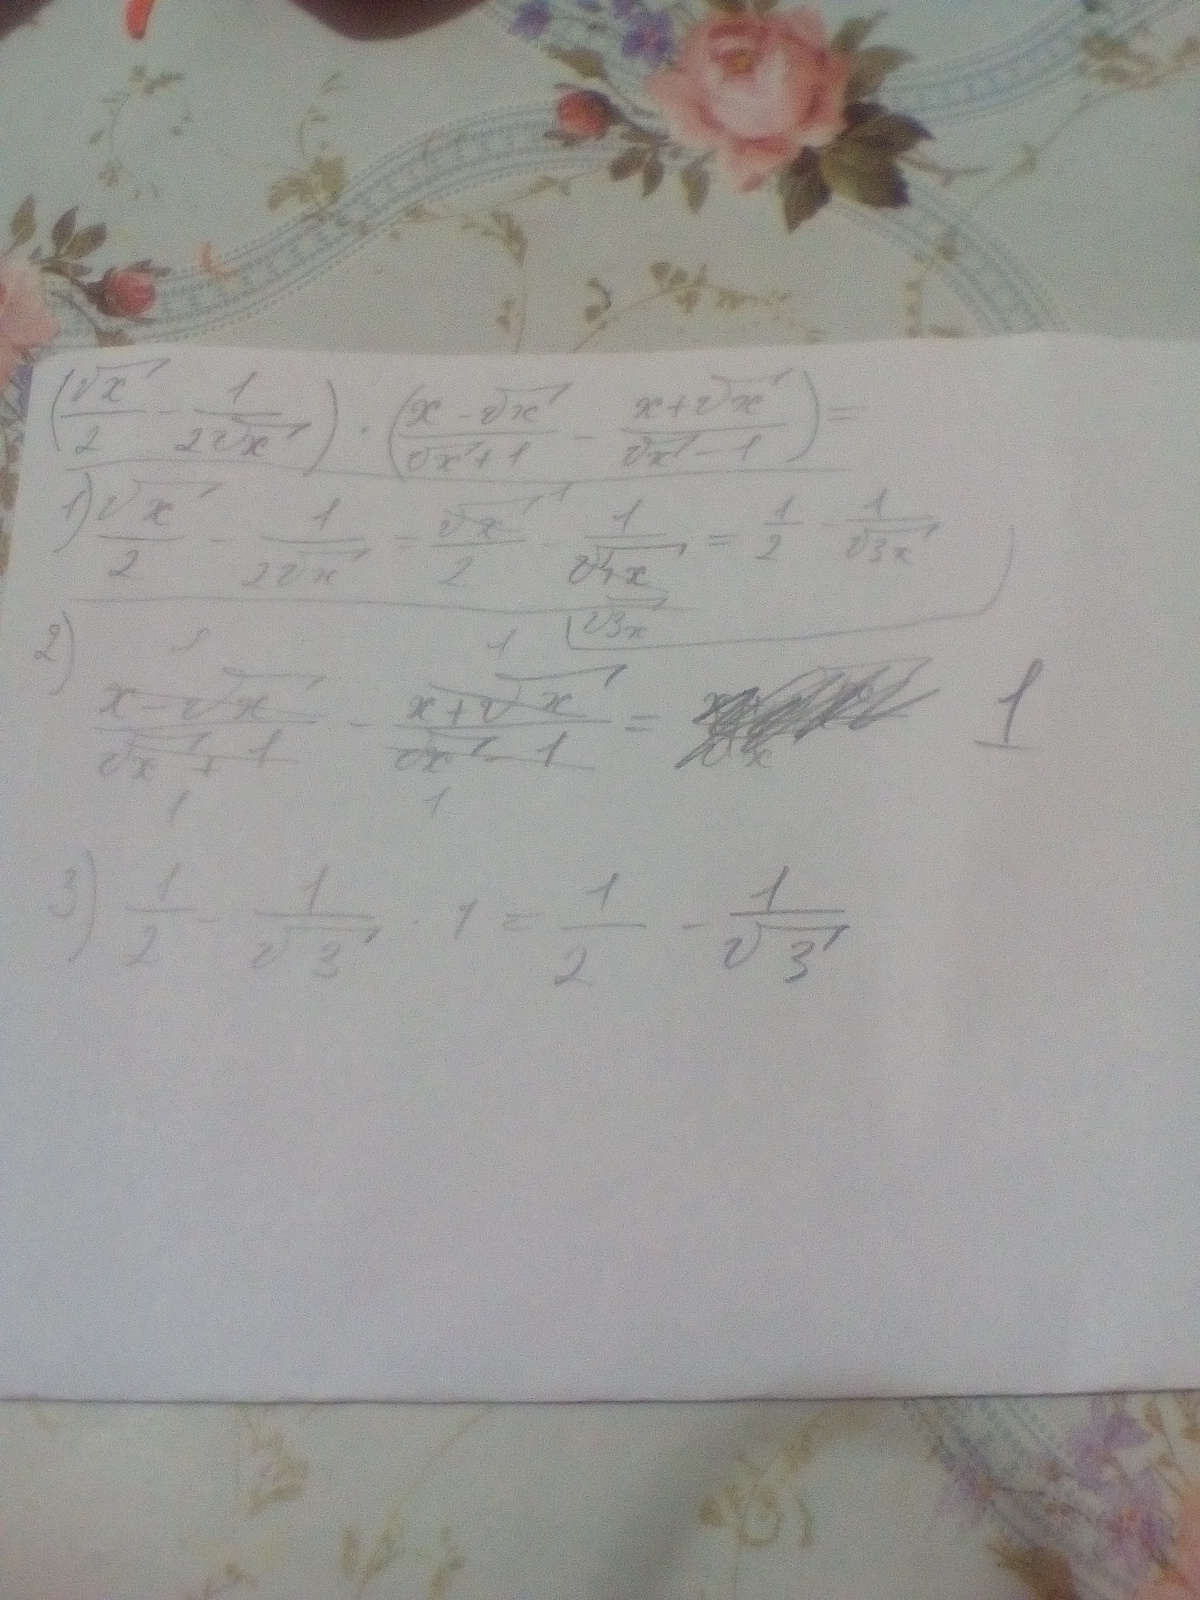 (√x/2 - 1/(2√x)) · ((x-√x)/(√x+1) - (x+√x)/(√x-1)) =
1) √x/2 - 1/(2√x) = √x/2 - 1/√4x = 1/2 - 1/√3x
√3x
2) (x-√x)/(√x+1) - (x+√x)/(√x-1) = 1
3) 1/2 - 1/√3 · 1 = 1/2 - 1/√3